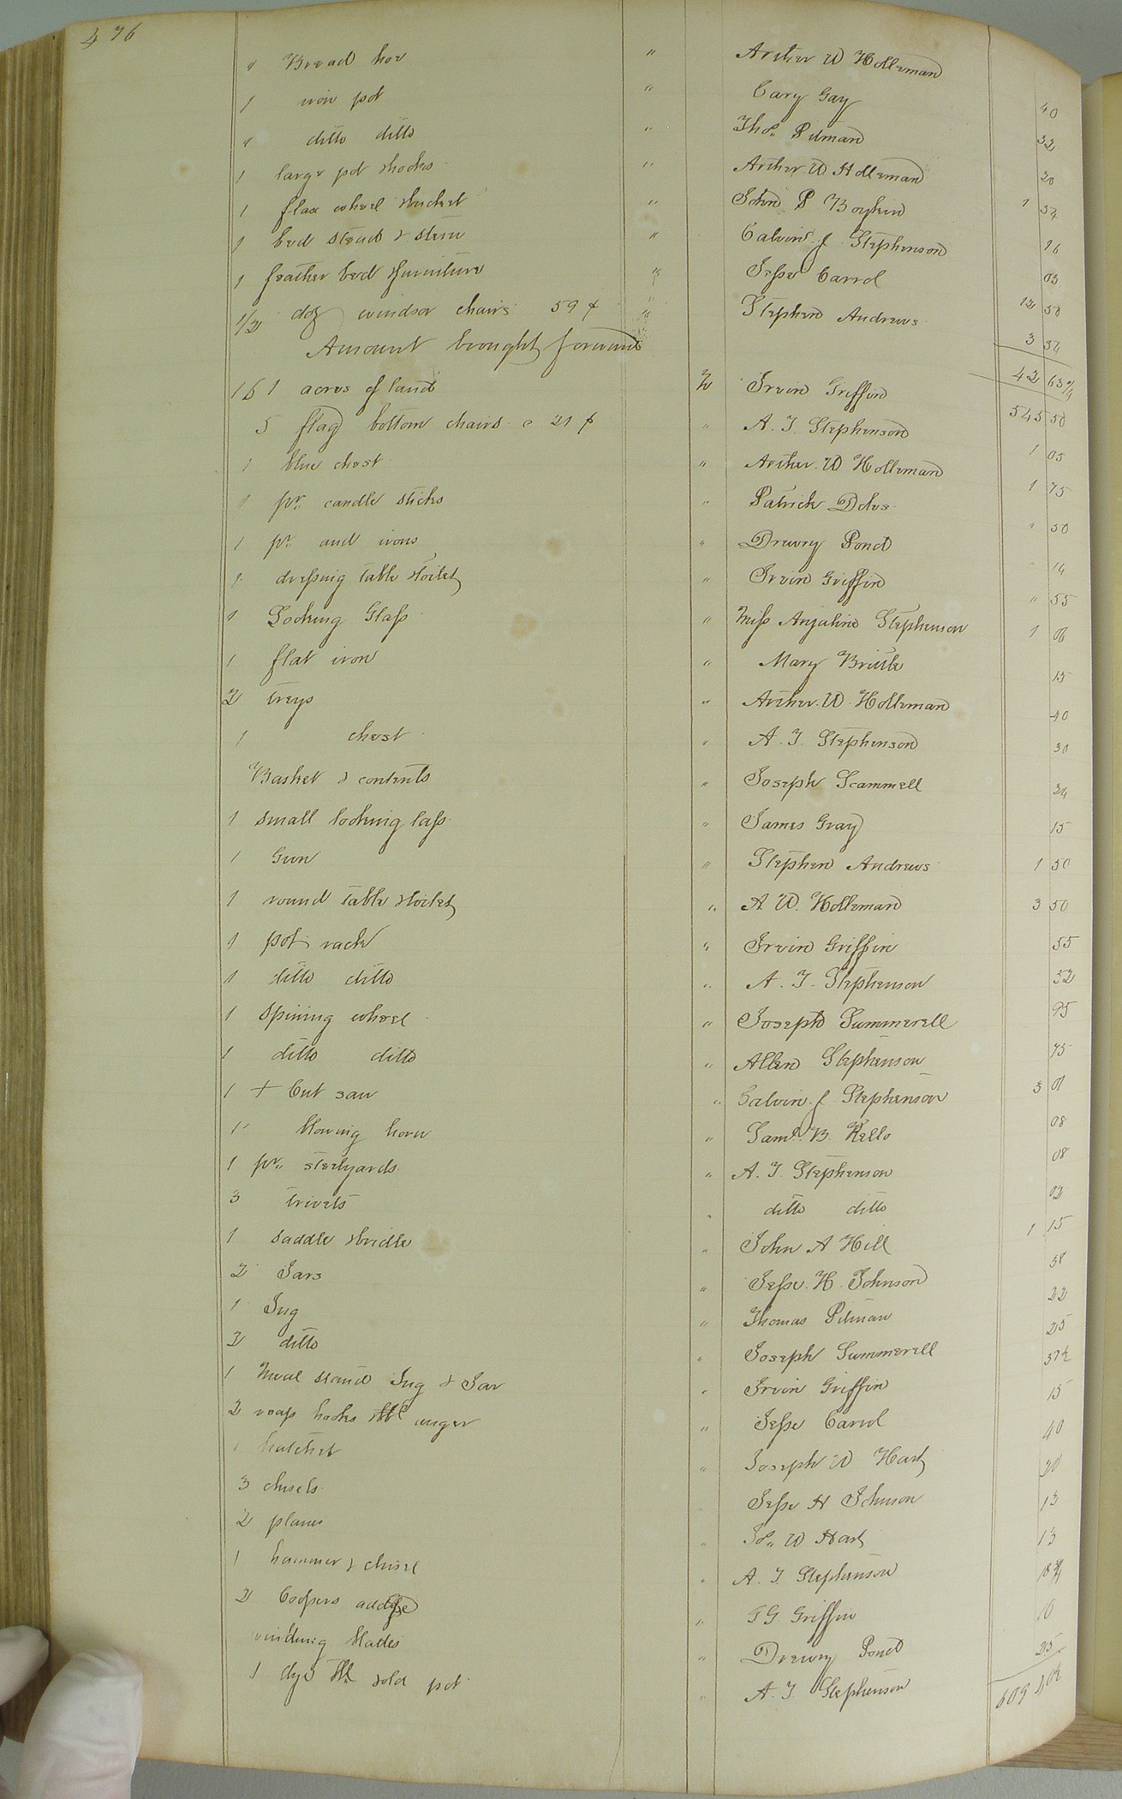 476
" Broad hoe " Archer W Holleman
1 iron pot " Cary Gay 40
" ditto ditto " Thos. Pitman 32
1 large pot & hooks " Archer W Holleman 20
1 flax wheel & hackel " John P Boykin 1 54
1 bed stead & " Calvin J Stephenson 16
1 feather bed & furniture " Jesse Carrol 12 50
1/2 doz windsor chairs 59 ¢ " Stephen Andrews 3 54
Amount brought forward 42 63 3/4
161 acres of land to Irvin Griffin 545 50
5 flag bottom chairs @ 21 ¢ " A. J. Stephenson 1 05
1 blue chest " Archer W Holleman 1 75
1 pr. candle sticks " Patrick Doles " 50
1 pr. and irons " Drewry Pond " 14
1 dressing table & toilet " Irvin Griffin " 55
1 Looking Glass " Miss Anjaline Stephenson 1 06
1 flat iron " Mary Brittle 15
2 treys " Archer W Holleman 40
1 chest " A. J. Stephenson 30
Basket & contents " Joseph Scammell 24
1 small looking lass " James Gray 15
1 Gun " Stephen Andrews 1 50
1 round table & toilet " A W. Holleman 3 50
1 pot rack " Irvin Griffin 55
1 ditto ditto " A. J. Stephenson 52
1 spining wheel " Joseph Summerell 95
1 ditto ditto " Allen Stephenson 75
1 + Cut saw " Calvin J Stephenson 3 01
1 blowing horn " Saml. B. Kello 08
1 pr. steelyards " A. J. Stephenson 08
3 trivets " ditto ditto 02
1 saddle & bridle " John A Hill 1 15
2 Jars " Jesse H Johnson 58
1 Jug " Thomas Pitman 22
2 ditto " Joseph Summerell 25
1 meal stand Jug & Jar " Irvin Griffin 37 1/2
2 reap hooks & auger " Jesse Carrol 15
1 hatchet " Joseph W Hart 40
3 chisels " Jesse H Johnson 20
2 planes " Jos. W Hart 13
1 hammer & chisel " A. J. Stephenson 13
2 Coopers " J G Griffin
winding blades " Drewry Pond 10
1 old pot " A. J. Stephenson 25
609